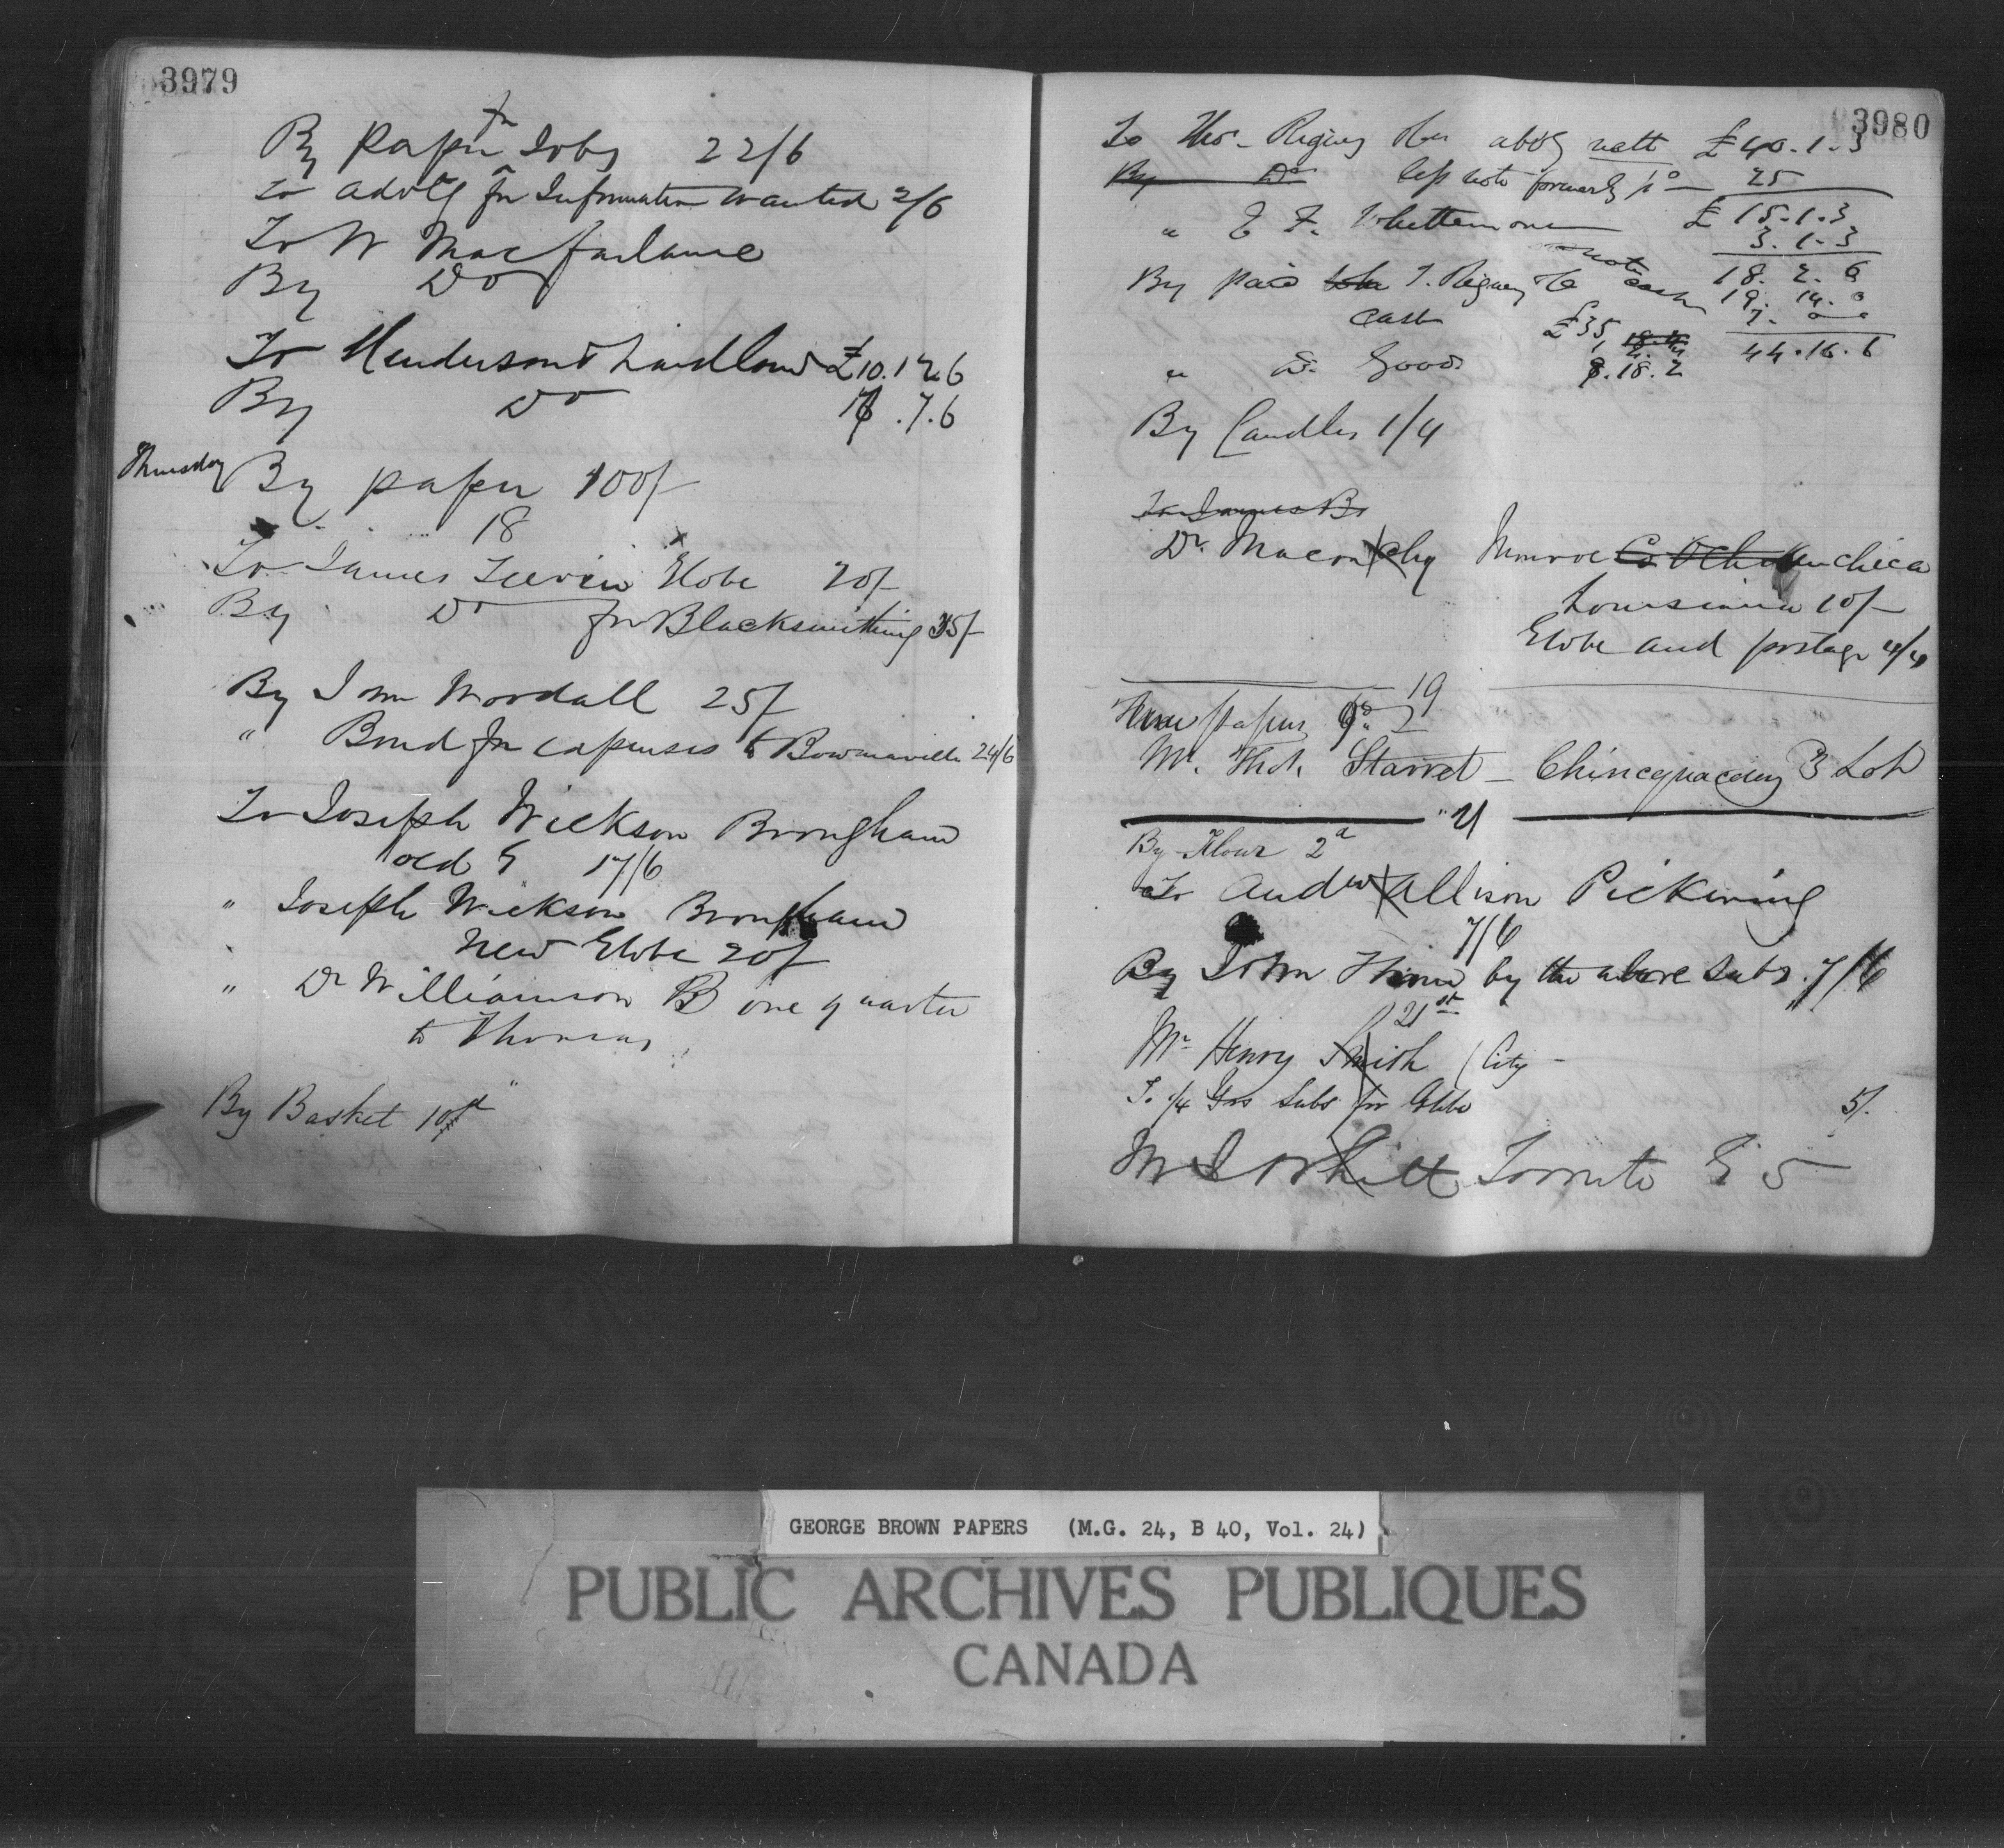 3979
By paper for Jobs 22/6
To advtg for Information wanted 2/6
To W Macfarlane
By Do
To Henderson & Laidlaw £10.12.6
By Do .7.6
Thursday By paper 100/-
18
To James Globe 20/-
By Do for Blacksmithing 35/-
By John Woodall 25/-
" Bond for expenses to Bowmanville 24/6
To Joseph Wickson Brougham
old G 17/6
" Joseph Wickson Brougham
New Globe 20/
" Dr Williamson B one quarter
to Thomas
By Basket 10d
3980
To Thos. Rigney above nett £40.1.3
By Do less note formerly 25
" E F. Whittemore £15.1.3
3.1.3
note 18.2.6
By paid T. Rigney cash 19.14.0
cash £35, 7.
44.16.6
" D. Good 8.18.2
By Candles 1/4
To James Br
Dr. Maconchy Monroe Co
Louisiana 10/-
Globe and postage 4/4
19
papers
Mr. Thos. Starret - Chincquacousy 3 Lot
"21
By Flour 2d
To Andw Allison Pickering
7/6
By John by the above Subs. 7/6
21st
Mr Henry Smith (City -
To 1/4 Yrs Subs for Globe 5/.
Toronto G 5
GEORGE BROWN PAPERS (M.G. 24, B 40, Vol. 24)
PUBLIC ARCHIVES PUBLIQUES
CANADA